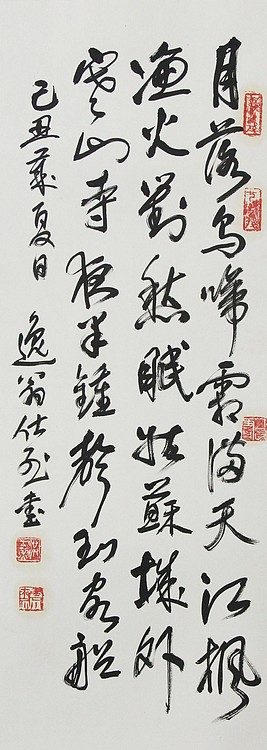 月落烏啼霜滿天江楓
漁火對愁眠姑蘇城外
寒山寺夜半鐘聲到客船
己丑年夏日 逸翁仕烈書